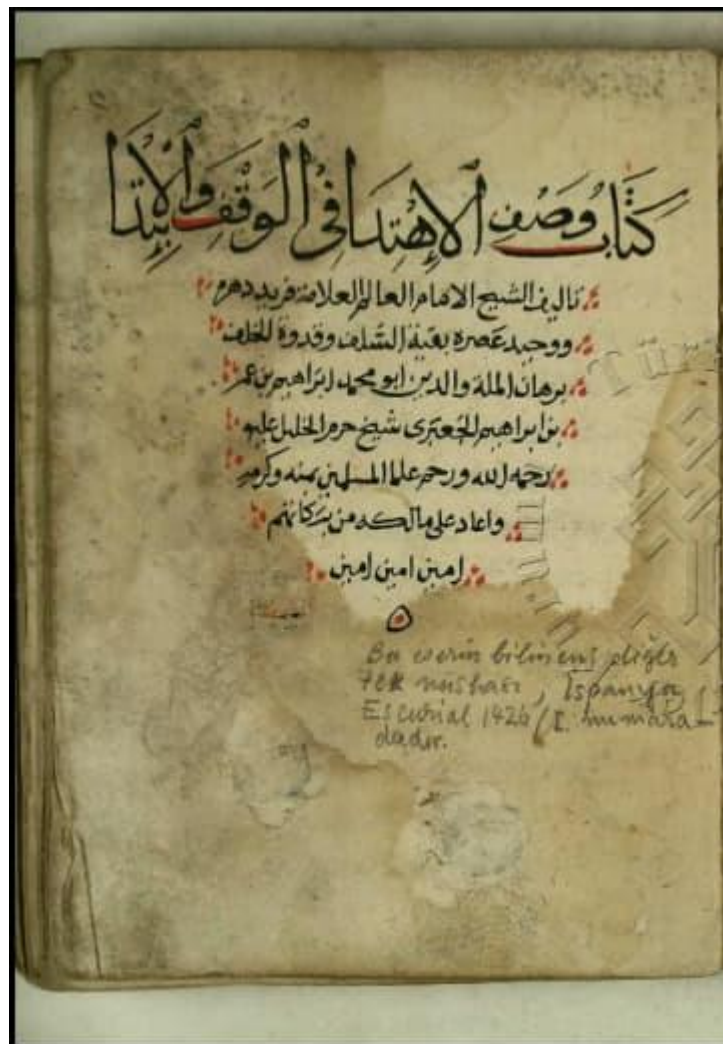 كِتَابُ وَصْفِ الْإِهْتِدَا فِي الْوَقْفِ وَالْإِبْتِدَا
تاليف الشيخ الامام العالم العلامة فريد دهره
ووحيد عصره بقية السلف وقدوة الخلف
برهان الملة والدين ابو محمد ابراهيم بن عمر
بن ابراهيم الجعبرى شيخ حرم الخليل عليه
رحمه الله ورحم علما المسلمين بمنه وكرمه
واعاد على مالكه من بركاتهم
امين امين امين
Bu eserin bilinen diğer
tek nushası, İspanya,
Escurial 1426/I. numara-
dadır.
Türk